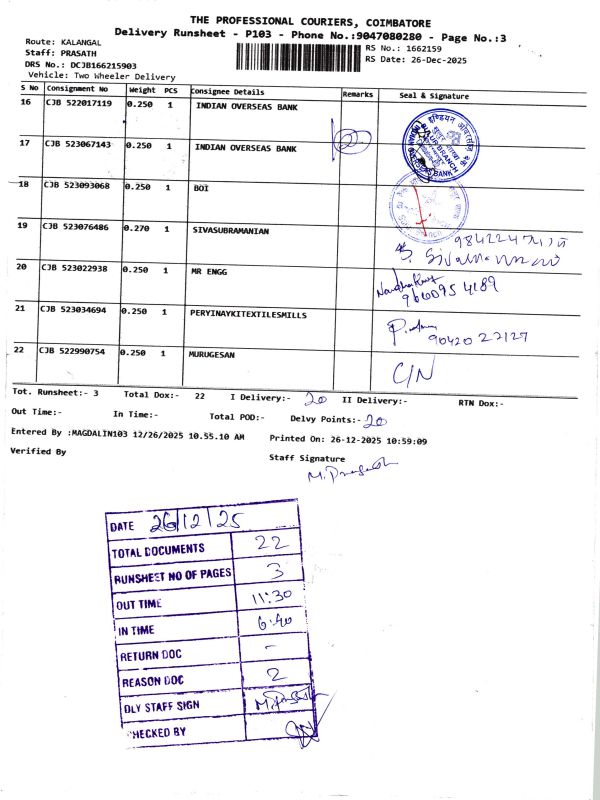 THE PROFESSIONAL COURIERS, COIMBATORE
Delivery Runsheet - P103 - Phone No.:9047080280 - Page No.:3
Route: KALANGAL
RS No.: 1662159
Staff: PRASATH
RS Date: 26-Dec-2025
DRS No.: DCJB166215903
Vehicle: Two Wheeler Delivery
S No Consignment No Weight PCS Consignee Details Remarks Seal & Signature
16 CJB 522017119 0.250 1 INDIAN OVERSEAS BANK
17 CJB 523067143 0.250 1 INDIAN OVERSEAS BANK
18 CJB 523093068 0.250 1 BOI
19 CJB 523076486 0.270 1 SIVASUBRAMANIAN
20 CJB 523022938 0.250 1 MR ENGG
9600954189
21 CJB 523034694 0.250 1 PERYINAYKITEXTILESMILLS
9042022127
22 CJB 522990754 0.250 1 MURUGESAN C/N
Tot. Runsheet:- 3 Total Dox:- 22 I Delivery:- 20 II Delivery:- RTN Dox:-
Out Time:- In Time:- Total POD:- Delvy Points:- 20
Entered By :MAGDALIN103 12/26/2025 10.55.10 AM Printed On: 26-12-2025 10:59:09
Verified By
Staff Signature
M. Prasath
DATE 26/12/25
TOTAL DOCUMENTS 22
RUNSHEET NO OF PAGES 3
OUT TIME 11:30
IN TIME 6:40
RETURN DOC -
REASON DOC 2
DLY STAFF SIGN M. Prasath
CHECKED BY